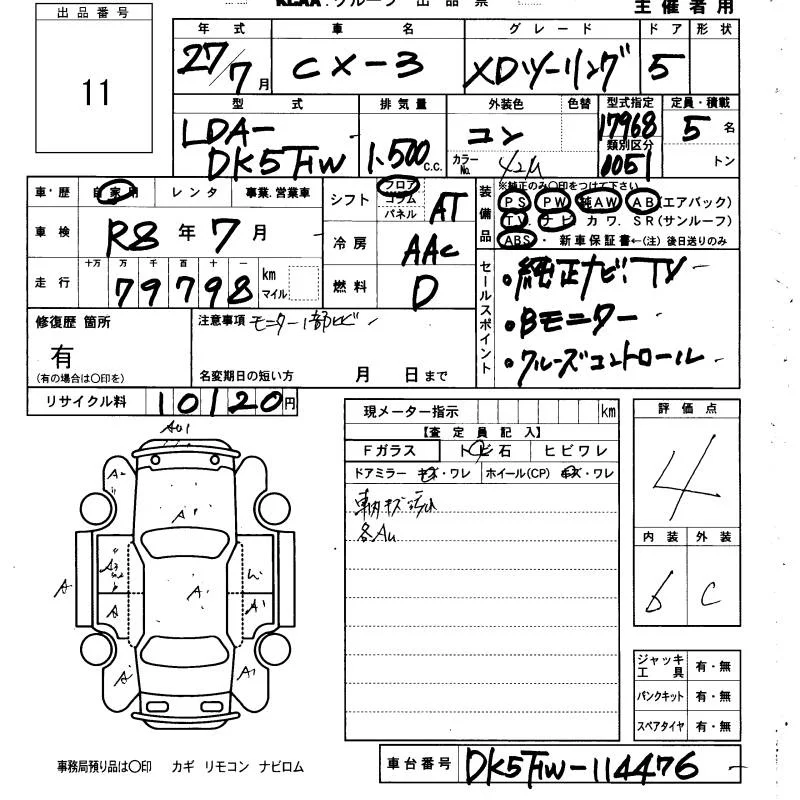 KCAA.グループ 出品票
主催者用
出品番号
11
年式 車名 グレード ドア 形状
27/7月 CX-3 XDツーリング 5
型式 排気量 外装色 色替 型式指定 定員・積載
LDA-DK5FW 1.500 c.c. コン 17968 5名
カラーNo. 42μ 類別区分 0051 トン
車・歴 自家用 レンタ 事業.営業車
シフト フロア コラム パネル AT
装備品 ※純正のみ〇印をつけて下さい
PS PW 純AW AB(エアバック)
TV. ナビ カワ. SR(サンルーフ)
ABS・ 新車保証書←(注) 後日送りのみ
車検 R8年7月
冷房 AAC
走行 十万 万 千 百 十 一 km マイル
79798
燃料 D
セールスポイント
・純正ナビTV
・Bモニター
・クルーズコントロール
修復歴 箇所
有
(有の場合は〇印を)
注意事項 モニター1部ロビー
名変期日の短い方 月 日まで
リサイクル料 10120円
現メーター指示 km
【査定員記入】
Fガラス トビ石 ヒビワレ
ドアミラー キズ・ワレ ホイール(CP) キズ・ワレ
各Au
評価点
4
内装 外装
b C
AU1
A-
A'
A
A
A
A'
A'
A'
ジャッキ工具 有・無
パンクキット 有・無
スペアタイヤ 有・無
事務局預り品は〇印 カギ リモコン ナビロム
車台番号 DK5FW-114476